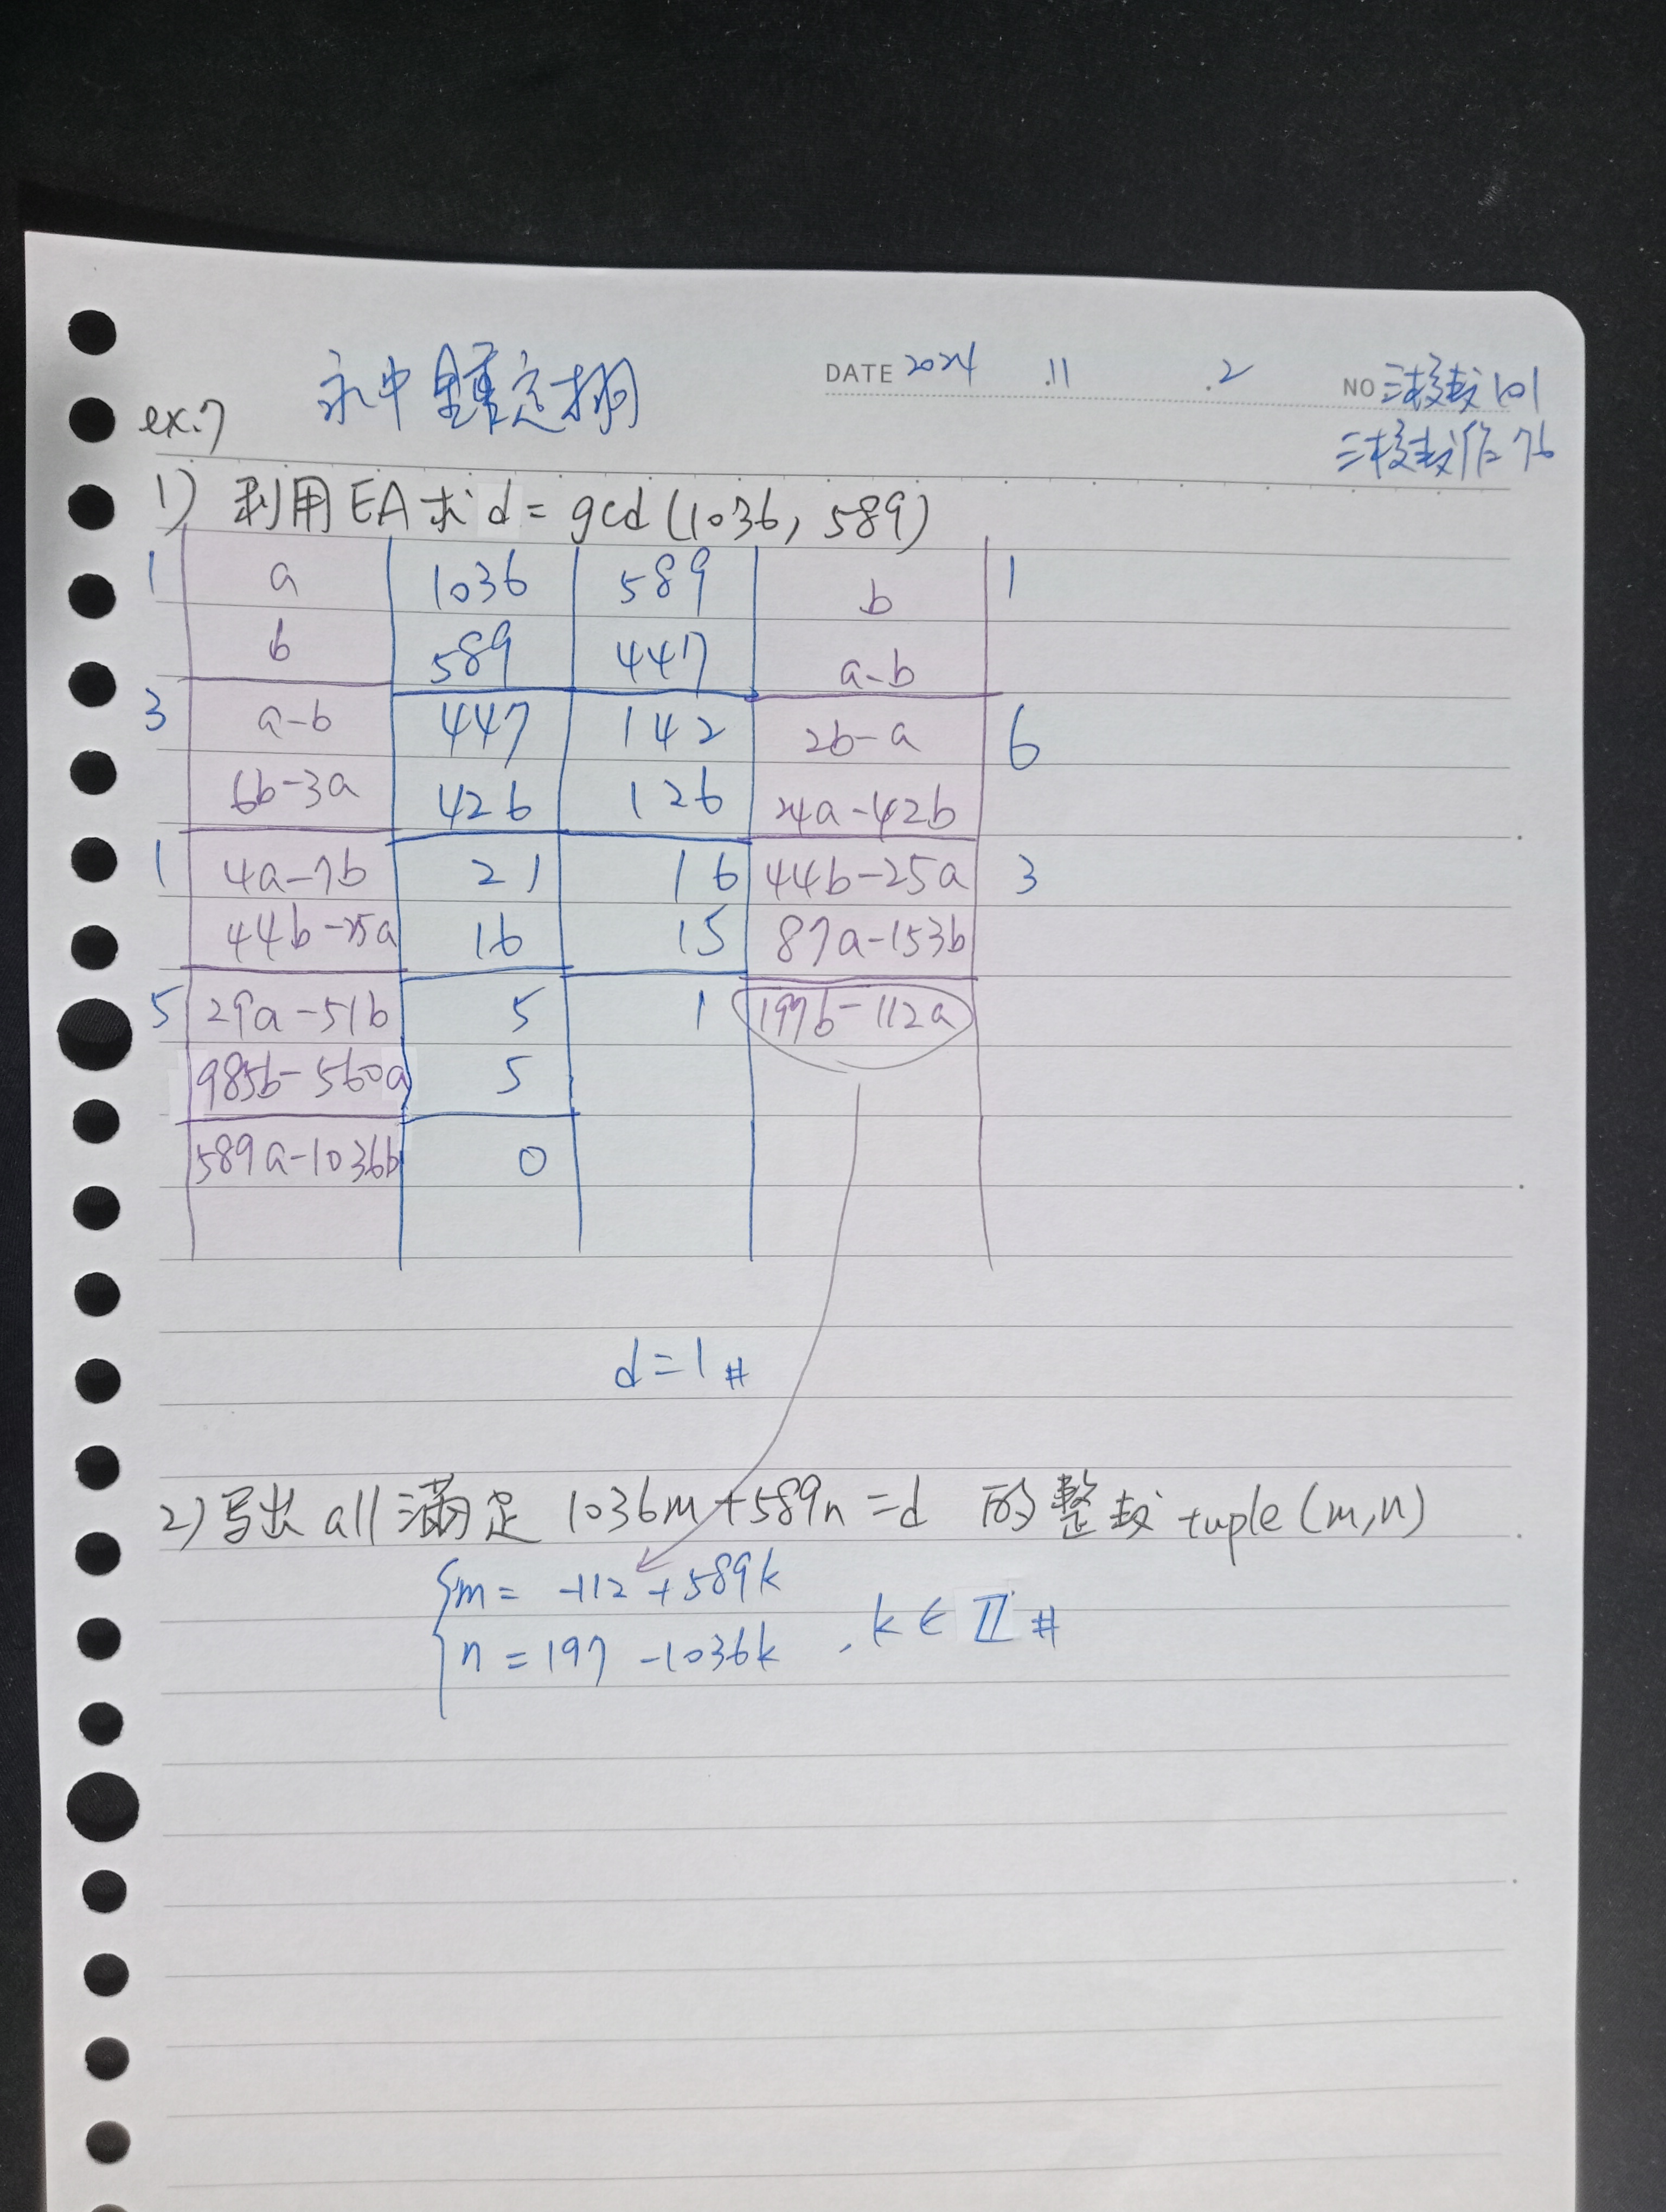 永中鍾定栩 DATE 2024 .11 .2 NO 101
76
ex.7
1) 利用EA求d=gcd(1036, 589)
1 a 1036 589 b 1
b 589 447 a-b
3 a-b 447 142 2b-a 6
6b-3a 426 126 24a-42b
1 4a-7b 21 16 44b-25a 3
44b-25a 16 15 87a-153b
5 29a-51b 5 1 197b-112a
985b-560a 5
589a-1036b 0
d=1#
2) 写出 all 滿足 1036m+589n=d 的整数 tuple (m,n)
{m= -112+589k
n=197 -1036k , k∈ℤ#